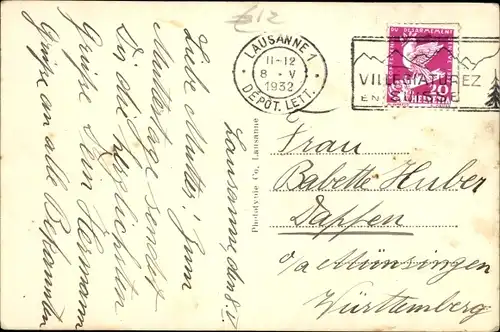 €12
LAUSANNE 1
11-12
8 · V
1932
DÉPÔT. LETT.
DU DÉSARMEMENT
VILLEGIATUREZ
EN SUISSE
20
HELVETIA
Lausanne, den 8. V.
Liebe Mutter! Zum
Muttertage sendet
Dir die herzlichsten
Grüsse Dein Hermann
Grüsse an alle Bekannten
Phototypie Co, Lausanne
Frau
Babette Huber
Dapfen
o/a Münsingen
Württemberg